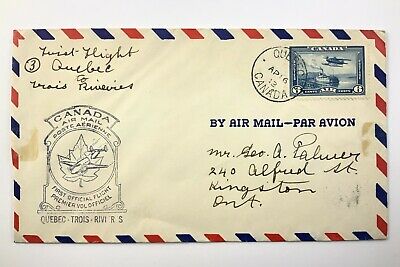 First Flight
③ Quebec
to
Trois Rivieres
CANADA
AIR MAIL
POSTE AÉRIENNE
FIRST OFFICIAL FLIGHT
PREMIER VOL OFFICIEL
QUEBEC-TROIS-RIVI R S
QUE
AP 16
CANADA
CANADA
6 CENTS AIR CENTS 6
BY AIR MAIL—PAR AVION
Mr. Geo. A. Palmer
240 Alfred St.
Kingston
Ont.